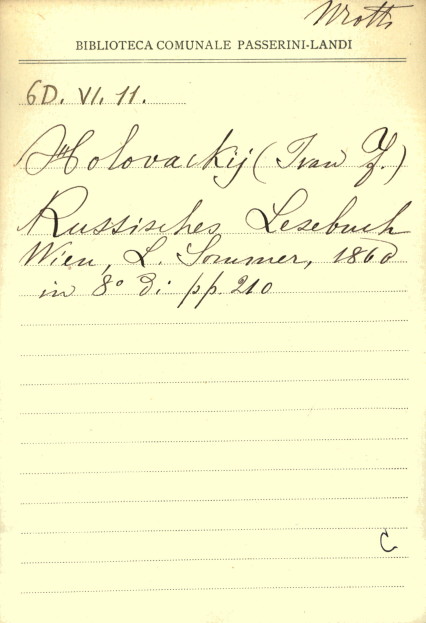 BIBLIOTECA COMUNALE PASSERINI-LANDI
6D. VI. 11.
Holovackij (Ivan F.)
Russisches Lesebuch
Wien, L. Sommer, 1860
in 8° di pp. 210
C